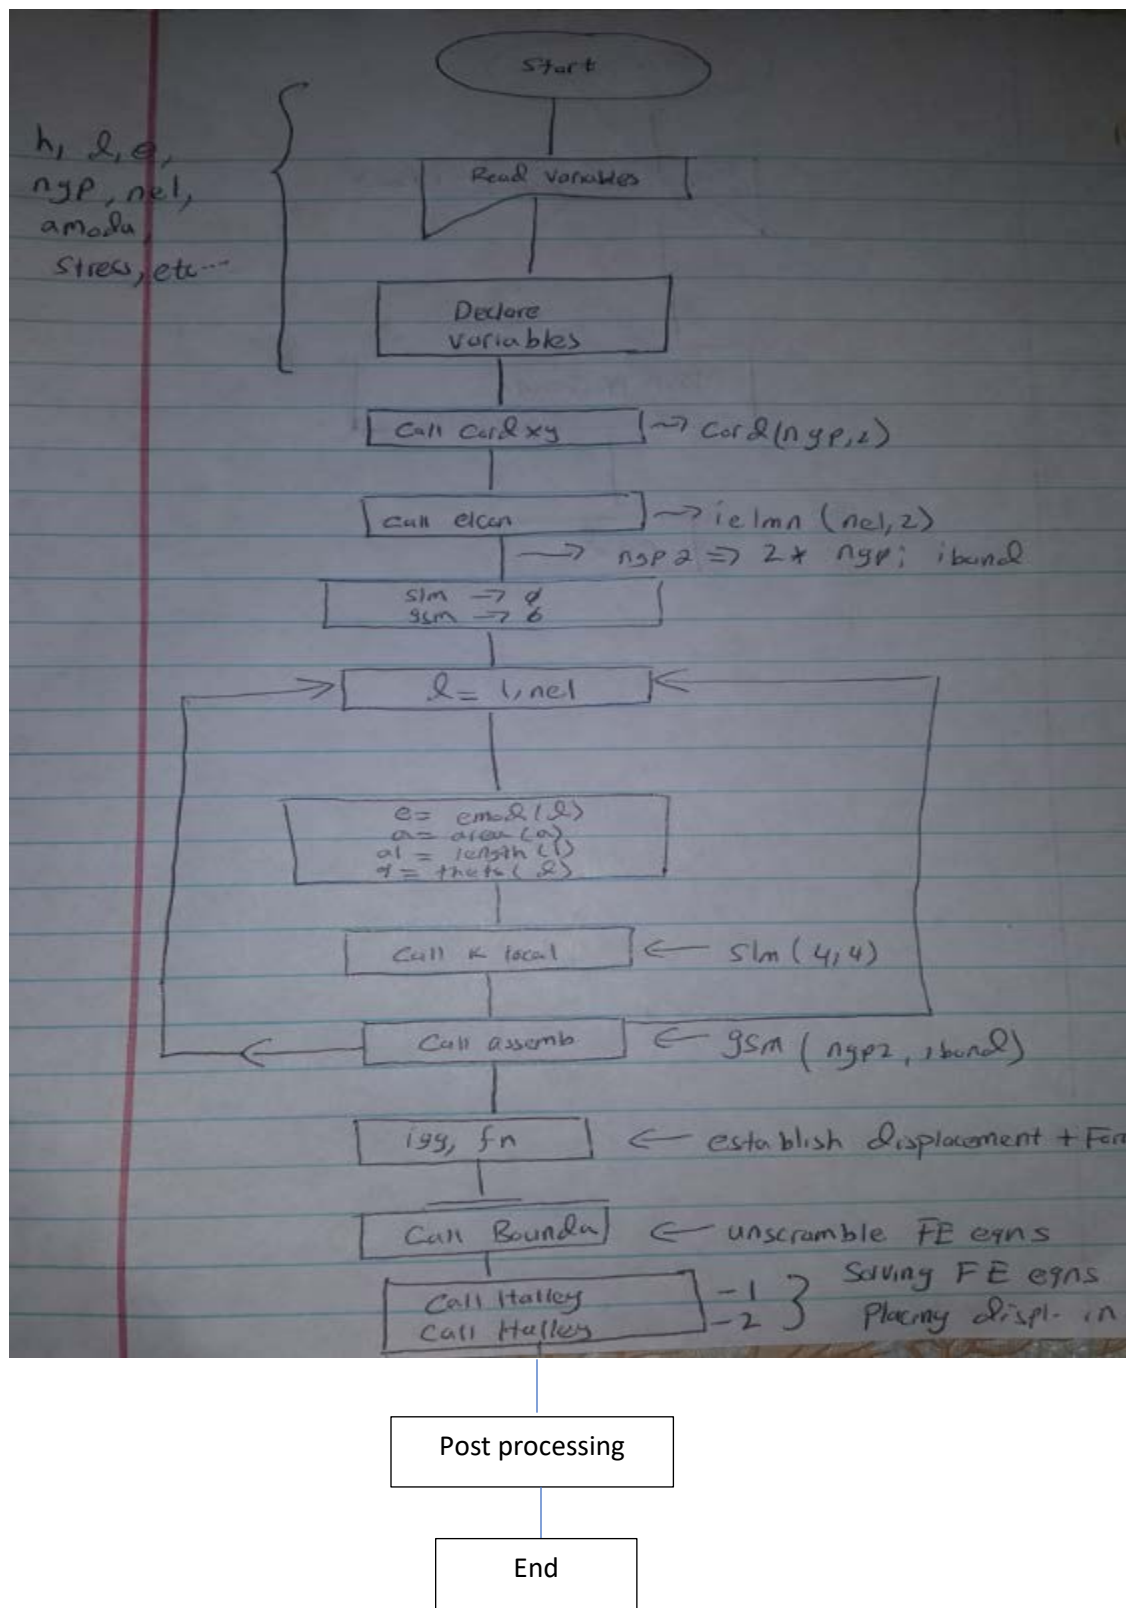 Start
h, l, e,
ngp, nel,
amodu,
stress, etc...
Read variables
Declare
variables
Call Cord xy → Cord(ngp,2)
Call elcon → ielmn (nel,2)
→ ngp2 => 2* ngp; iband
slm → 0
gsm → 0
l = 1, nel
e = emod(l)
a = area(a)
al = length(l)
= theta(l)
Call k local ← slm (4,4)
Call assemb ← gsm (ngp2, iband)
igg, fn ← establish displacement +
Call Bounda ← unscramble FE eqns
Call Halley -1 } Solving FE eqns
Call Halley -2 Placing displ. in
Post processing
End